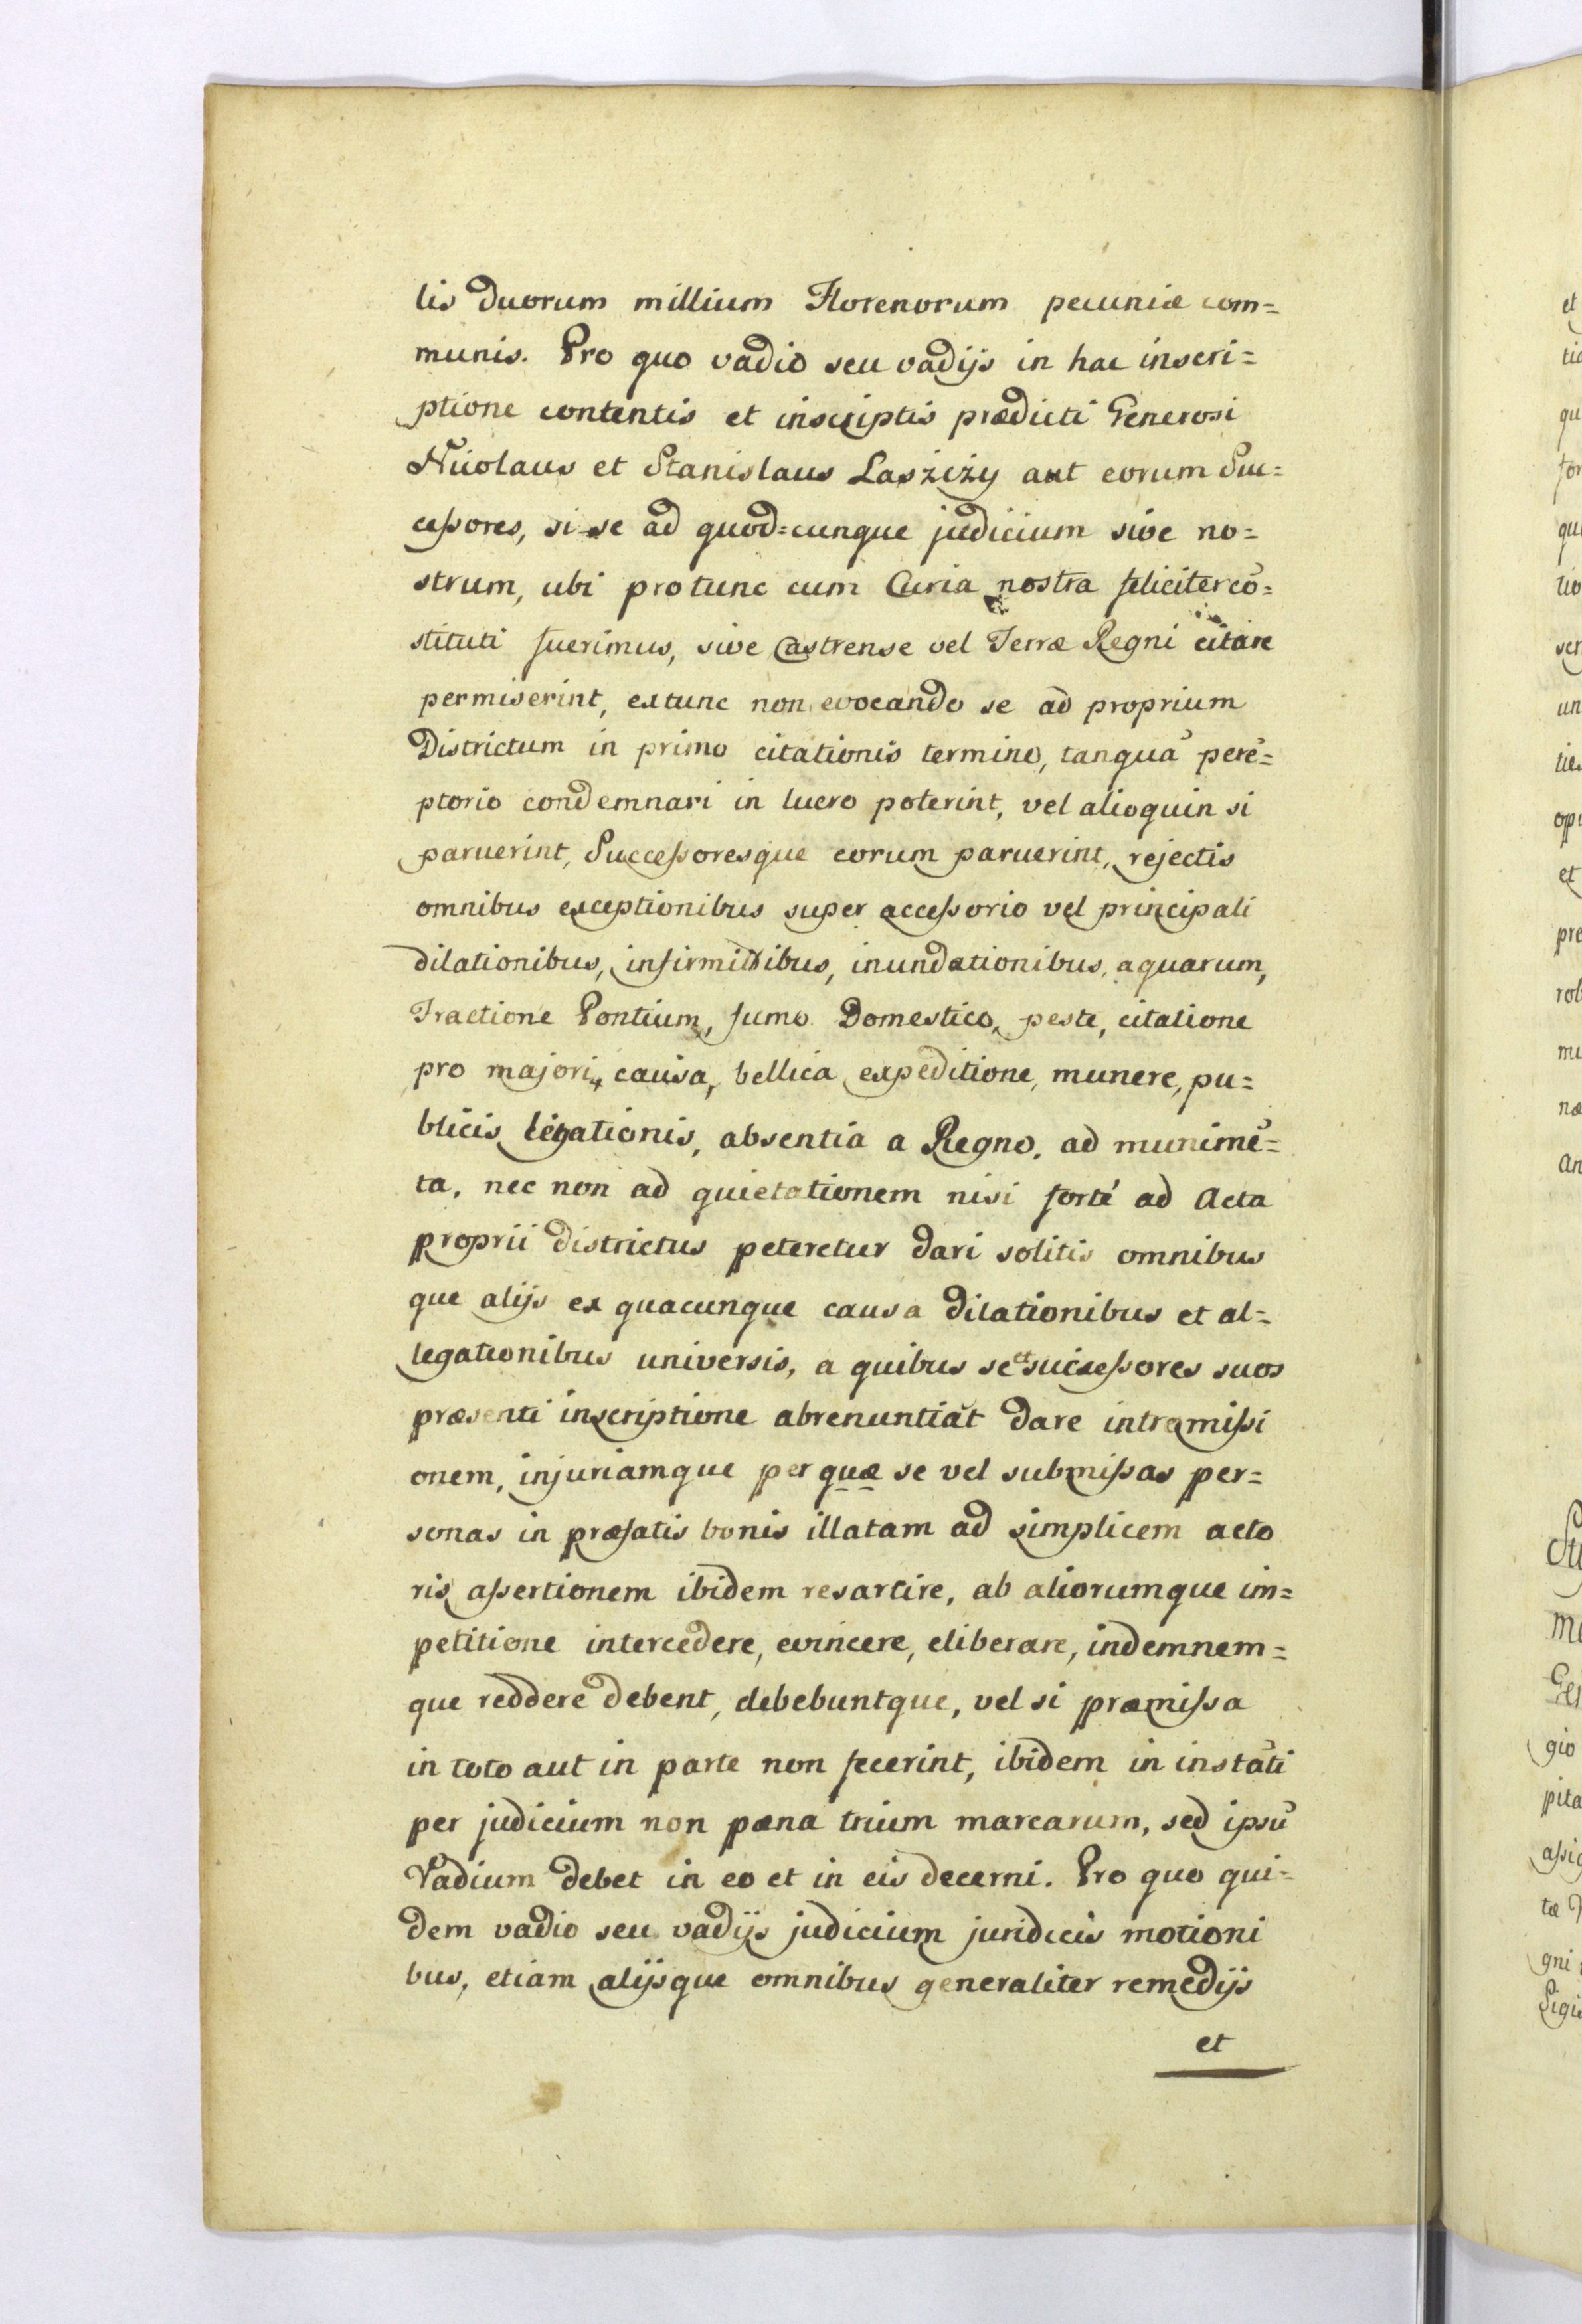 lis duorum millium Florenorum pecuniæ com=
munis. Pro quo vadio seu vadijs in hac inscri=
ptione contentis et inscriptis prædicti Generosi
Nicolaus et Stanislaus Laszizy aut eorum Suc=
cessores, si se ad quod=cunque judicium sive no=
strum, ubi pro tunc cum Curia nostra feliciter cō=
stituti fuerimus, sive Castrense vel Terræ Regni citare
permiserint, extunc non evocando se ad proprium
Districtum in primo citationis termino, tanquā perē=
ptorio condemnari in lucro poterint, vel alioquin si
paruerint, Successoresque eorum paruerint, rejectis
omnibus exceptionibus super accessorio vel principali
dilationibus, infirmitibus, inundationibus, aquarum,
Fractione Pontium, fumo Domestico, peste, citatione
pro majori, causa, bellica expeditione, munere, pu=
blicis legationis, absentia a Regno, ad munimē=
ta, nec non ad quietationem nisi forté ad Acta
proprii districtus peteretur dari solitis omnibus
que alijs ex quacunque causa dilationibus et al=
legationibus universis, a quibus se et successores suos
præsenti inscriptione abrenuntiāt dare intromissi
onem, injuriamque per quæ se vel submissas per=
sonas in præfatis bonis illatam ad simplicem acto
ris assertionem ibidem resartire, ab aliorumque im=
petitione intercedere, evincere, eliberare, indemnem=
que reddere debent, debebuntque, vel si præmissa
in toto aut in parte non fecerint, ibidem in instāti
per judicium non pæna trium marcarum, sed ipsū
Vadium debet in eo et in eis decerni. Pro quo qui=
dem vadio seu vadijs judicium juridicis motioni
bus, etiam alijsque omnibus generaliter remedijs
et